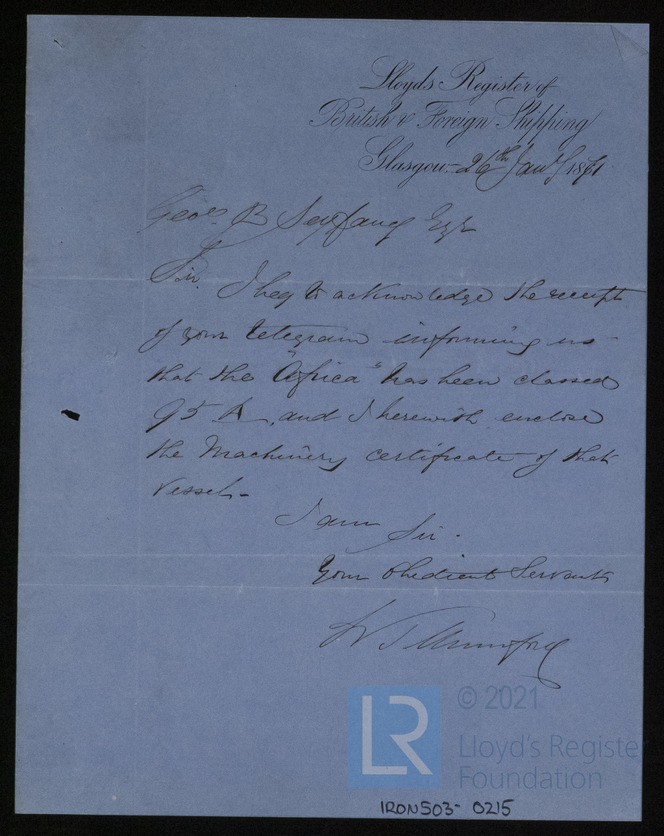 Lloyds Register of
British & Foreign Shipping
Glasgow 26th Jany 1871
Geo. B Seyfang Esqr
Sir. I beg to acknowledge the receipt
of your telegram informing us
that the "Africa" has been classed
95 A, and I herewith enclose
the Machinery certificate of that
Vessel.
I am Sir.
Your Obedient Servant
W J Mumford
© 2021
LR
Lloyd's Registe
Foundation
IRON503-0215